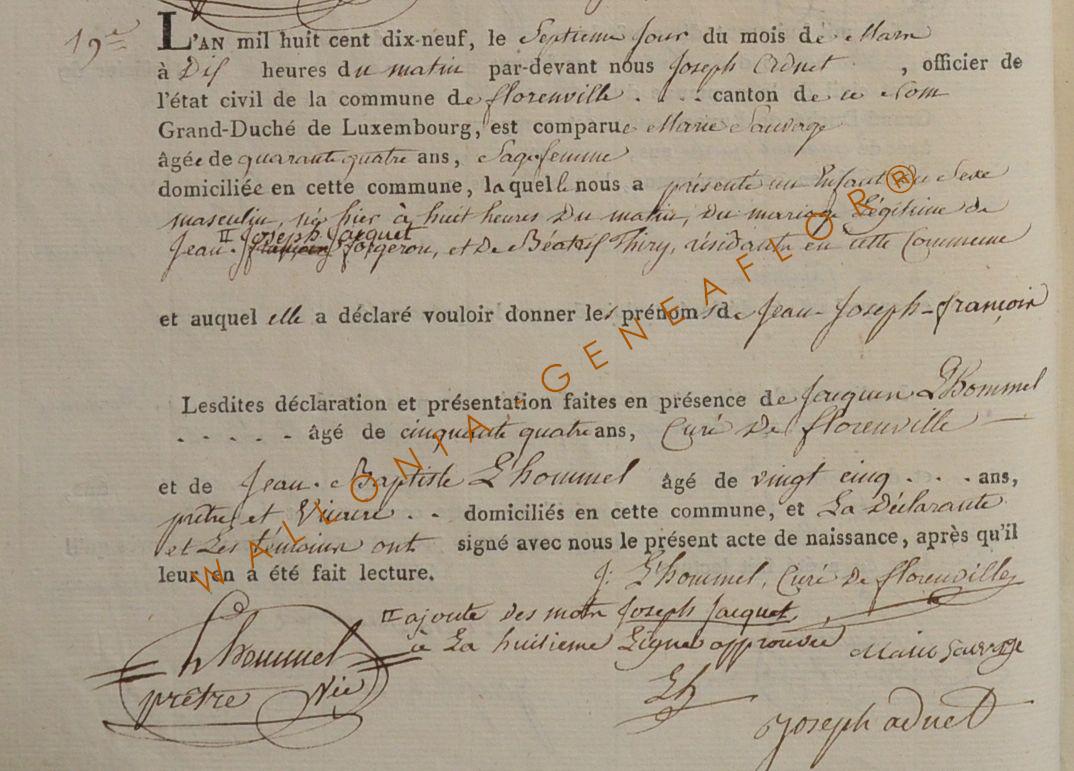 19e L'AN mil huit cent dix-neuf, le Septieme jour du mois de Mars
à Dix heures du matin par-devant nous Joseph Adnet, officier de
l'état civil de la commune de florenville . . . canton de ce Nom
Grand-Duché de Luxembourg, est comparue Marie Sauvage
âgée de quarante quatre ans, Sagefemme
domiciliée en cette commune, laquelle nous a présenté un Enfant du Sexe
masculin, né hier à huit heures Du matin, Du mariage Légitime de
Joseph Jacquet
Jean-françois forgeron, et de Béatrix Thiry, résidants en cette Commune
et auquel elle a déclaré vouloir donner les prénoms de Jean-Joseph-françois
Lesdites déclaration et présentation faites en présence de Jacques L'hommel
. . . . . âgé de cinquante quatre ans, Curé De florenville
et de Jean-Baptiste L'hommel âgé de vingt cinq . . . ans,
prêtre et Vicaire . . domiciliés en cette commune, et La Déclarante
et Les témoins ont signé avec nous le présent acte de naissance, après qu'il
leur en a été fait lecture.
J: L'hommel, Curé De florenville
ajoute des mots Joseph Jacquet,
à La huitieme Ligne approuvée
Marie Sauvage
Lhommel
prêtre Vic
Lh
Joseph adnet
WALLONIA-GENEAFLOR®